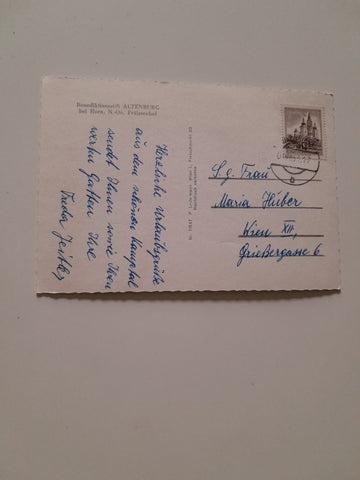 Benediktinerstift ALTENBURG
bei Horn, N.-Oe. Prälatenhof
Herzliche Urlaubsgrüße
aus dem schönen Kamptal
sendet Ihnen sowie Ihrem
werten Gatten Ihre
S. g. Frau
Maria Huber
Wien XII,
Grießergasse 6